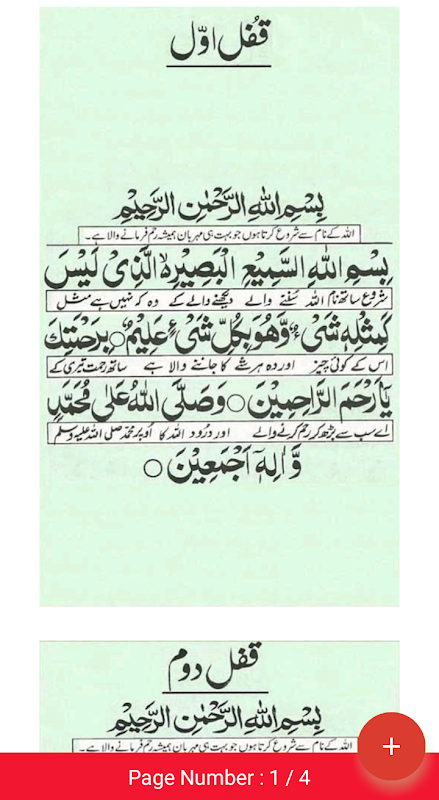 قفل اوّل
بِسْمِ اللهِ الرَّحْمٰنِ الرَّحِيْمِ
اللہ کے نام سے شروع کرتا ہوں جو بہت ہی مہربان ہمیشہ رحم فرمانے والا ہے۔
بِسْمِ اللهِ السَّمِيْعِ الْبَصِيْرِ الَّذِيْ لَيْسَ
شروع ساتھ نام اللہ سننے والے دیکھنے والے کے وہ کہ نہیں ہے مثل
كَمِثْلِهٖ شَيْءٌ وَّهُوَ بِكُلِّ شَيْءٍ عَلِيْمٌ ○ بِرَحْمَتِكَ
اس کے کوئی چیز اور وہ ہر شے کا جاننے والا ہے ساتھ رحمت تیری کے
يَا اَرْحَمَ الرَّاحِمِيْنَ ○ وَصَلَّى اللهُ عَلٰى مُحَمَّدٍ
اے سب سے بڑھ کر رحم کرنے والے اور درود اللہ کا اوپر محمد صلی اللہ علیہ وسلم
وَّاٰلِهٖٓ اَجْمَعِيْنَ ○
قفل دوم
بِسْمِ اللهِ الرَّحْمٰنِ الرَّحِيْمِ
اللہ کے نام سے شروع کرتا ہوں جو بہت ہی مہربان ہمیشہ رحم فرمانے والا ہے۔
+
Page Number : 1 / 4